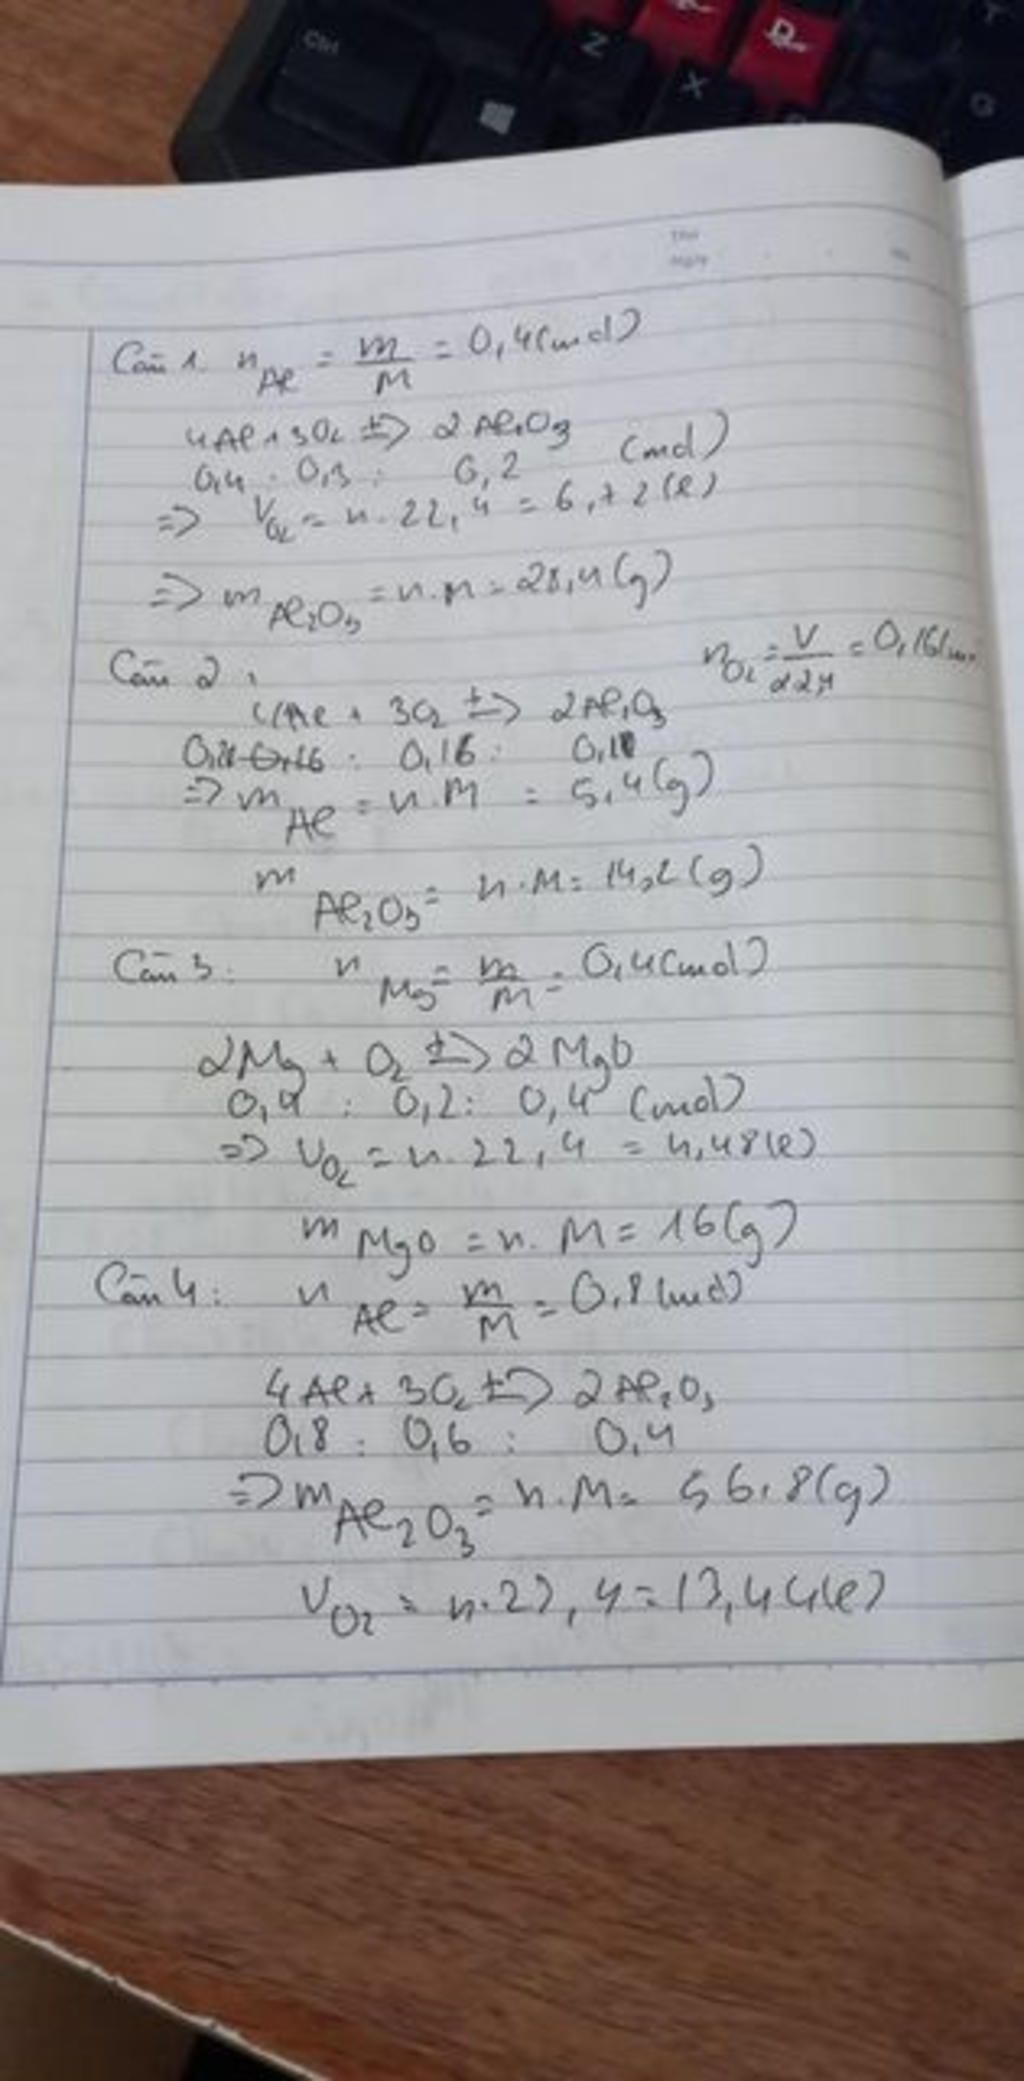 Ctrl
Z
X
D
G
Thứ
Ngày
No.
Câu 1. n Al = m/M = 0,4 (mol)
4Al + 3O2 t°=> 2Al2O3
0,4 : 0,3 : 0,2 (mol)
=> VO2 = n.22,4 = 6,72 (l)
=> m Al2O3 = n.M = 28,4 (g)
Câu 2: nO2 = V/22,4 = 0,16 (m
4Al + 3O2 t°=> 2Al2O3
: 0,16 :
=> m Al = n.M = 5,4 (g)
m Al2O3 = n.M = 14,2 (g)
Câu 3: n Mg = m/M = 0,4 (mol)
2Mg + O2 t°=> 2MgO
0,4 : 0,2 : 0,4 (mol)
=> VO2 = n.22,4 = 4,48 (l)
m MgO = n.M = 16 (g)
Câu 4: n Al = m/M = 0,8 (mol)
4Al + 3O2 t°=> 2Al2O3
0,8 : 0,6 : 0,4
=> m Al2O3 = n.M = 56,8 (g)
VO2 = n.22,4 = 13,44 (l)